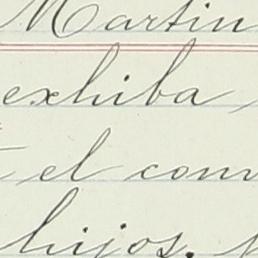 Martin
exhiba
el com
hijos.